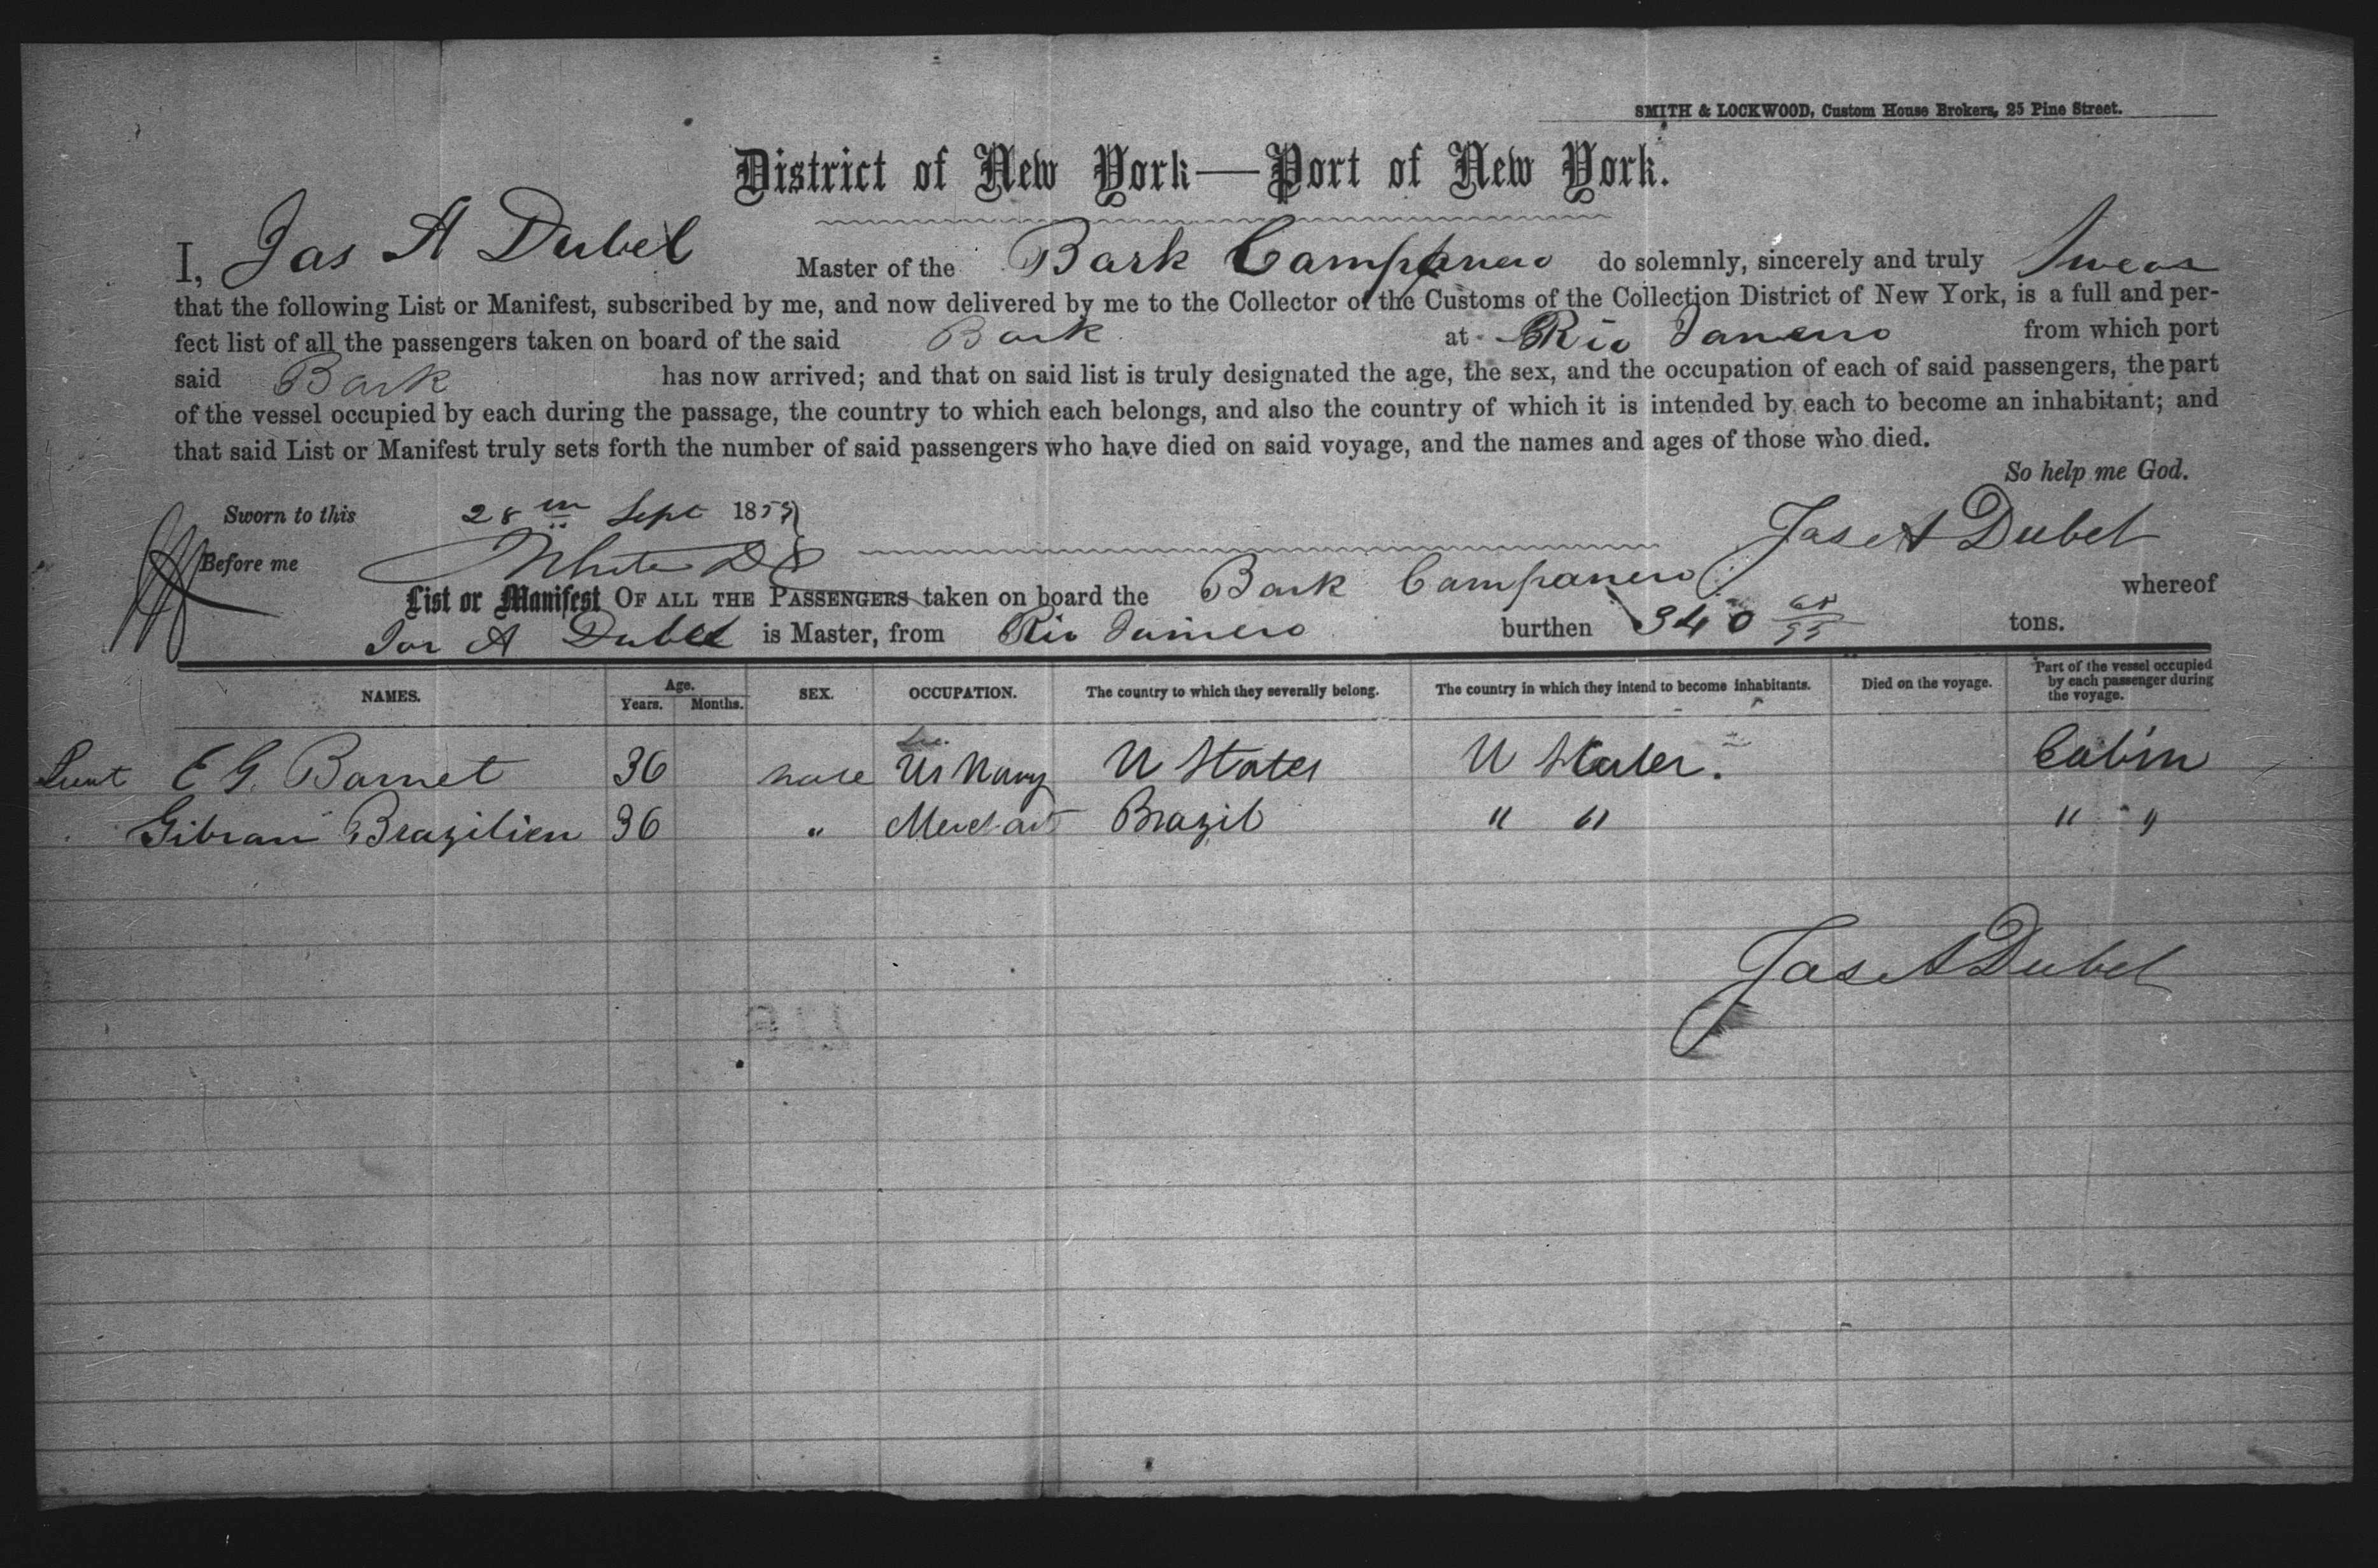 SMITH & LOCKWOOD, Custom House Brokers, 25 Pine Street.
District of New York—Port of New York.
I, Jas A Dubel Master of the Bark Campanero do solemnly, sincerely and truly Swear
that the following List or Manifest, subscribed by me, and now delivered by me to the Collector of the Customs of the Collection District of New York, is a full and per-
fect list of all the passengers taken on board of the said Bark at Rio Janeiro from which port
said Bark has now arrived; and that on said list is truly designated the age, the sex, and the occupation of each of said passengers, the part
of the vessel occupied by each during the passage, the country to which each belongs, and also the country of which it is intended by each to become an inhabitant; and
that said List or Manifest truly sets forth the number of said passengers who have died on said voyage, and the names and ages of those who died.
So help me God.
Sworn to this 28th Sept 1859
Jas A Dubel
Before me White
List or Manifest OF ALL THE PASSENGERS taken on board the Bark Campanero whereof
Jas A Dubel is Master, from Rio Janiero burthen 340 tons.
NAMES. Age. Years. Months. SEX. OCCUPATION. The country to which they severally belong. The country in which they intend to become inhabitants. Died on the voyage. Part of the vessel occupied by each passenger during the voyage.
Lieut E G. Barnet 36 male US Navy U States U States. Cabin
Gibran Brazilien 36 " Merchant Brazil " " " "
Jas A Dubel